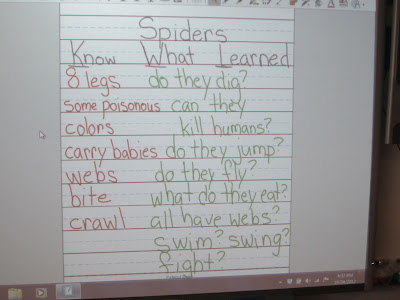 Spiders
Know What Learned
8 legs do they dig?
some poisonous can they
colors kill humans?
carry babies do they jump?
webs do they fly?
bite what do they eat?
crawl all have webs?
swim? swing?
fight?